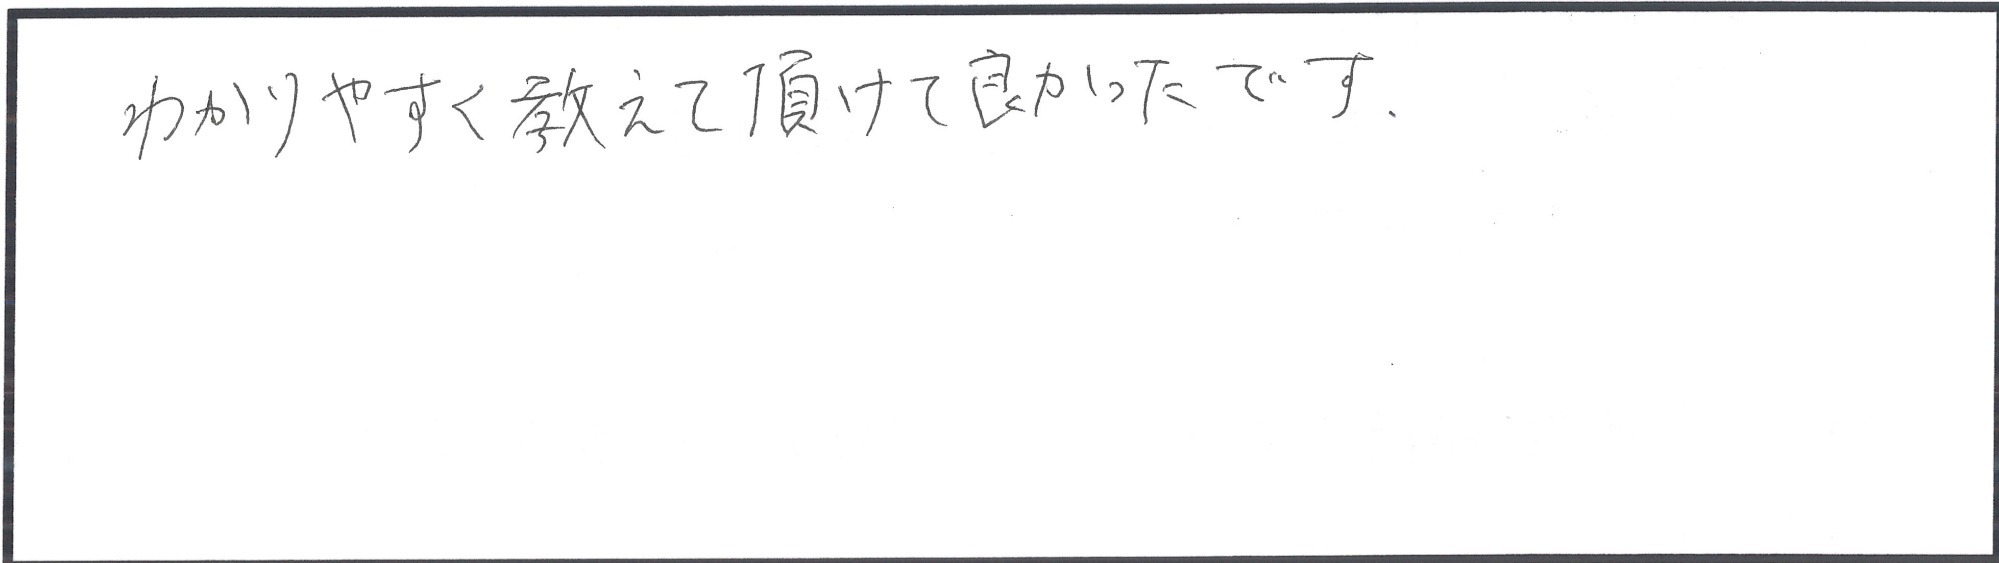 わかりやすく教えて頂けて良かったです.